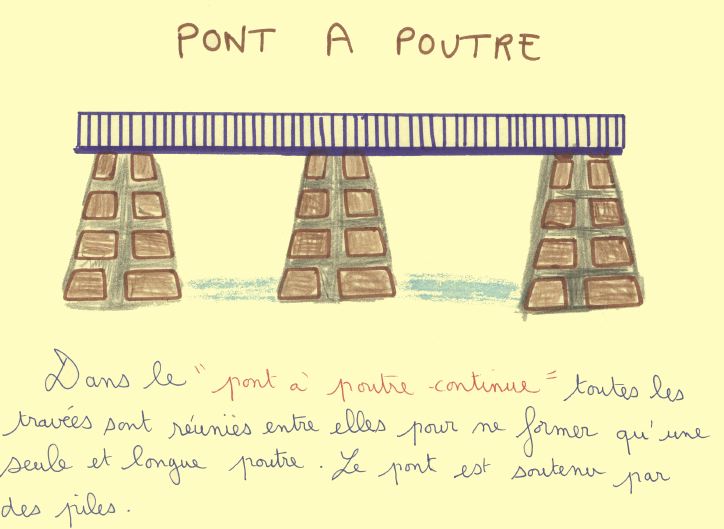 PONT A POUTRE
Dans le "pont à poutre continue" toutes les
travées sont réuniés entre elles pour ne former qu'une
seule et longue poutre. Le pont est soutenu par
des piles.